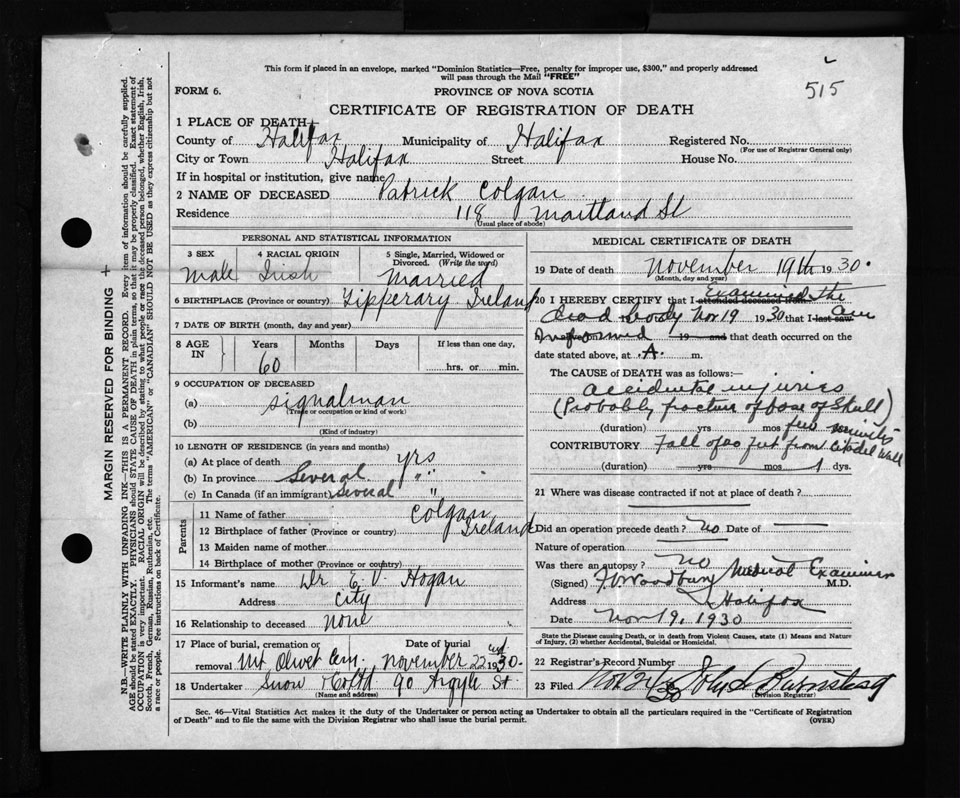 This form if placed in an envelope, marked "Dominion Statistics—Free, penalty for improper use, $300," and properly addressed
will pass through the Mail "FREE"
515
FORM 6.
PROVINCE OF NOVA SCOTIA
CERTIFICATE OF REGISTRATION OF DEATH
1 PLACE OF DEATH
County of Halifax Municipality of Halifax Registered No.
(For use of Registrar General only)
City or Town Halifax Street House No.
If in hospital or institution, give name
2 NAME OF DECEASED Patrick Colgan
Residence 118 Maitland St
(Usual place of abode)
PERSONAL AND STATISTICAL INFORMATION
3 SEX 4 RACIAL ORIGIN 5 Single, Married, Widowed or
Divorced. (Write the word)
Male Irish Married
6 BIRTHPLACE (Province or country) Tipperary Ireland
7 DATE OF BIRTH (month, day and year)
8 AGE IN Years Months Days If less than one day,
60 hrs. or min.
9 OCCUPATION OF DECEASED
(a) Signalman
(Trade or occupation or kind of work)
(b)
(Kind of industry)
10 LENGTH OF RESIDENCE (in years and months)
(a) At place of death yrs
(b) In province Several "
(c) In Canada (if an immigrant) Several "
Parents
11 Name of father Colgan
12 Birthplace of father (Province or country) Ireland
13 Maiden name of mother
14 Birthplace of mother (Province or country)
15 Informant's name Dr E. V. Hogan
Address City
16 Relationship to deceased None
17 Place of burial, cremation or Date of burial
removal Mt Olivet Cem. November 22nd 1930.
18 Undertaker Snow & Co Ltd 90 Argyle St.
(Name and address)
MEDICAL CERTIFICATE OF DEATH
19 Date of death November 19th 1930.
(Month, day and year)
20 I HEREBY CERTIFY that I attended deceased from Examined the
dead body Nov 19 1930 that I last saw am
informed 19 and that death occurred on the
date stated above, at A. m.
The CAUSE of DEATH was as follows:—
Accidental injuries
(Probably fracture of base of Skull)
(duration) yrs mos few minutes
CONTRIBUTORY Fall of 20 feet from Citadel Wall
(duration) yrs mos 1 dys.
21 Where was disease contracted if not at place of death?
Did an operation precede death? No Date of
Nature of operation
Was there an autopsy? No
(Signed) F. Woodbury Medical Examiner M.D.
Address Halifax
Date Nov 19, 1930
State the Disease causing Death, or in death from Violent Causes, state (1) Means and
Nature of Injury, (2) whether Accidental, Suicidal or Homicidal.
22 Registrar's Record Number
23 Filed Nov John
Division Registrar
Sec. 46—Vital Statistics Act makes it the duty of the Undertaker or person acting as Undertaker to obtain all the particulars required in the "Certificate of Registration
of Death" and to file the same with the Division Registrar who shall issue the burial permit.
(OVER)
MARGIN RESERVED FOR BINDING
N.B.—WRITE PLAINLY WITH UNFADING INK—THIS IS A PERMANENT RECORD. Every item of information should be carefully supplied.
AGE should be stated EXACTLY. PHYSICIANS should STATE CAUSE OF DEATH in plain terms, so that it may be properly classified. Exact statement of
OCCUPATION is very important. RACIAL ORIGIN will be described by stating to what people or race the deceased person belonged, whether English, Irish,
Scotch, French, German, Russian, Ruthenian, etc. The terms "AMERICAN" or "CANADIAN" SHOULD NOT BE USED as they express citizenship but not
a race or people. See instructions on back of Certificate.